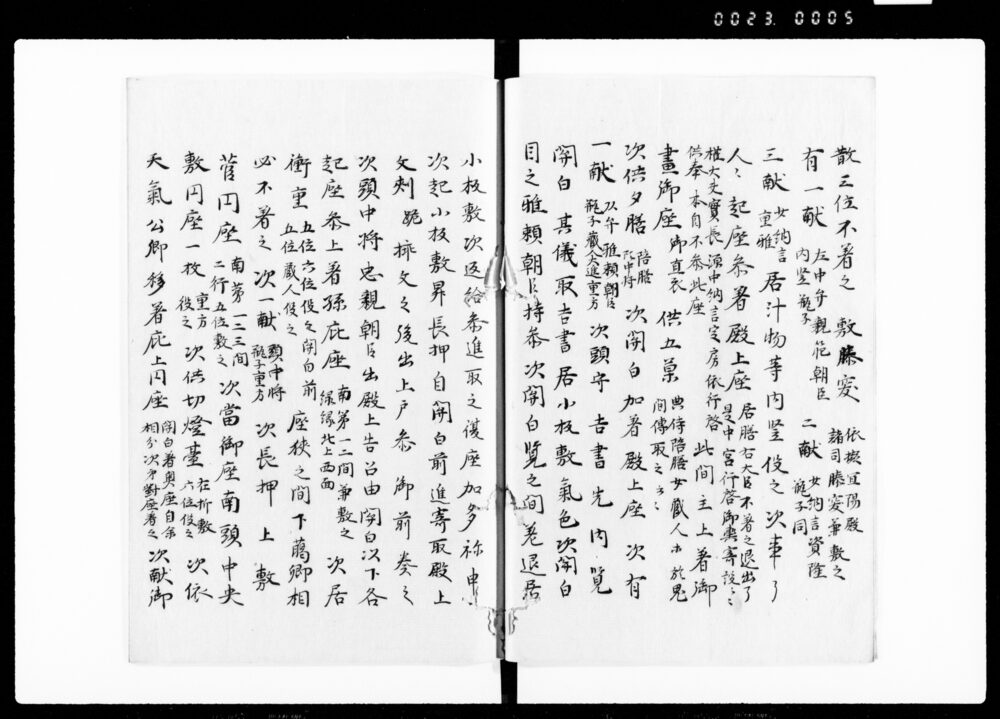 0023.0005
散三位不著之 敷縢突 依擬宜陽殿
諸司縢突兼敷之
有一献 左中弁親範朝臣
内竪瓶子 二献 少納言資隆
瓶子同
三献 少納言
重雅 居汁物等内竪役之 次事了
人〻起座参著殿上座 居膳右大臣不著之退出了
是中宮行啓御輿寄設〻
権大夫實長源中納言定房依行啓
供奉本自不参此座 此間主上著御
晝御座 御直衣 供五菓 典侍陪膳女蔵人於
間傳取之云〻
次供夕膳 陪膳
次開白加著殿上座 次有
一献 以弁雅頼朝臣
瓶子蔵人大進重方 次頭守吉書先内覧
開白其儀取吉書居小板敷氣色次開白
目之雅頼朝臣持参次開白覧之間巻退居
小板敷次返給参進取之復座加多祢申
次起小板敷昇長押自開白前進寄取殿上
文刺 挿文之後出上戸参御前奏之
次頭中将忠親朝臣出殿上告召由開白以下各
起座参上著孫庇座 南第一二間兼敷之
緑縁北上西面 次居
衝重 五位六位役之開白前
五位蔵人役之 座狭之間下臈卿相
必不著之 次一献 頭中将
瓶子重方 次長押上敷
菅円座 南第一二三間
二行五位敷之 次當御座南頭中央
敷円座一枚 重方
役之 次供切燈臺 在折敷
六位役之 次依
天氣公卿移著庇上円座 開白著奥座自余
相分次第對座著之 次献御